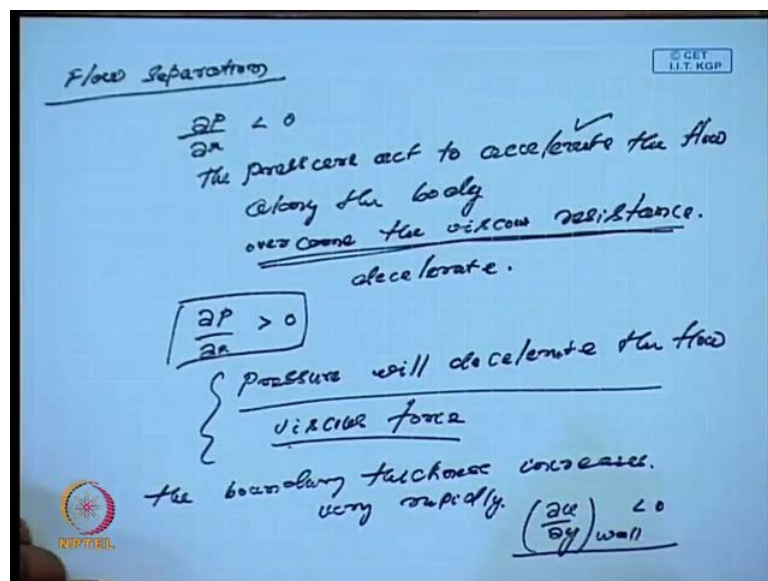 Flow Separation
© CET
I.I.T. KGP
∂P/∂x < 0
The pressure act to accelerate the flow
along the body
over come the viscous resistance.
decelerate.
∂P/∂x > 0
Pressure will decelerate the flow
viscous force
the boundary thickness increases.
very rapidly.
(∂u/∂y)wall < 0
NPTEL